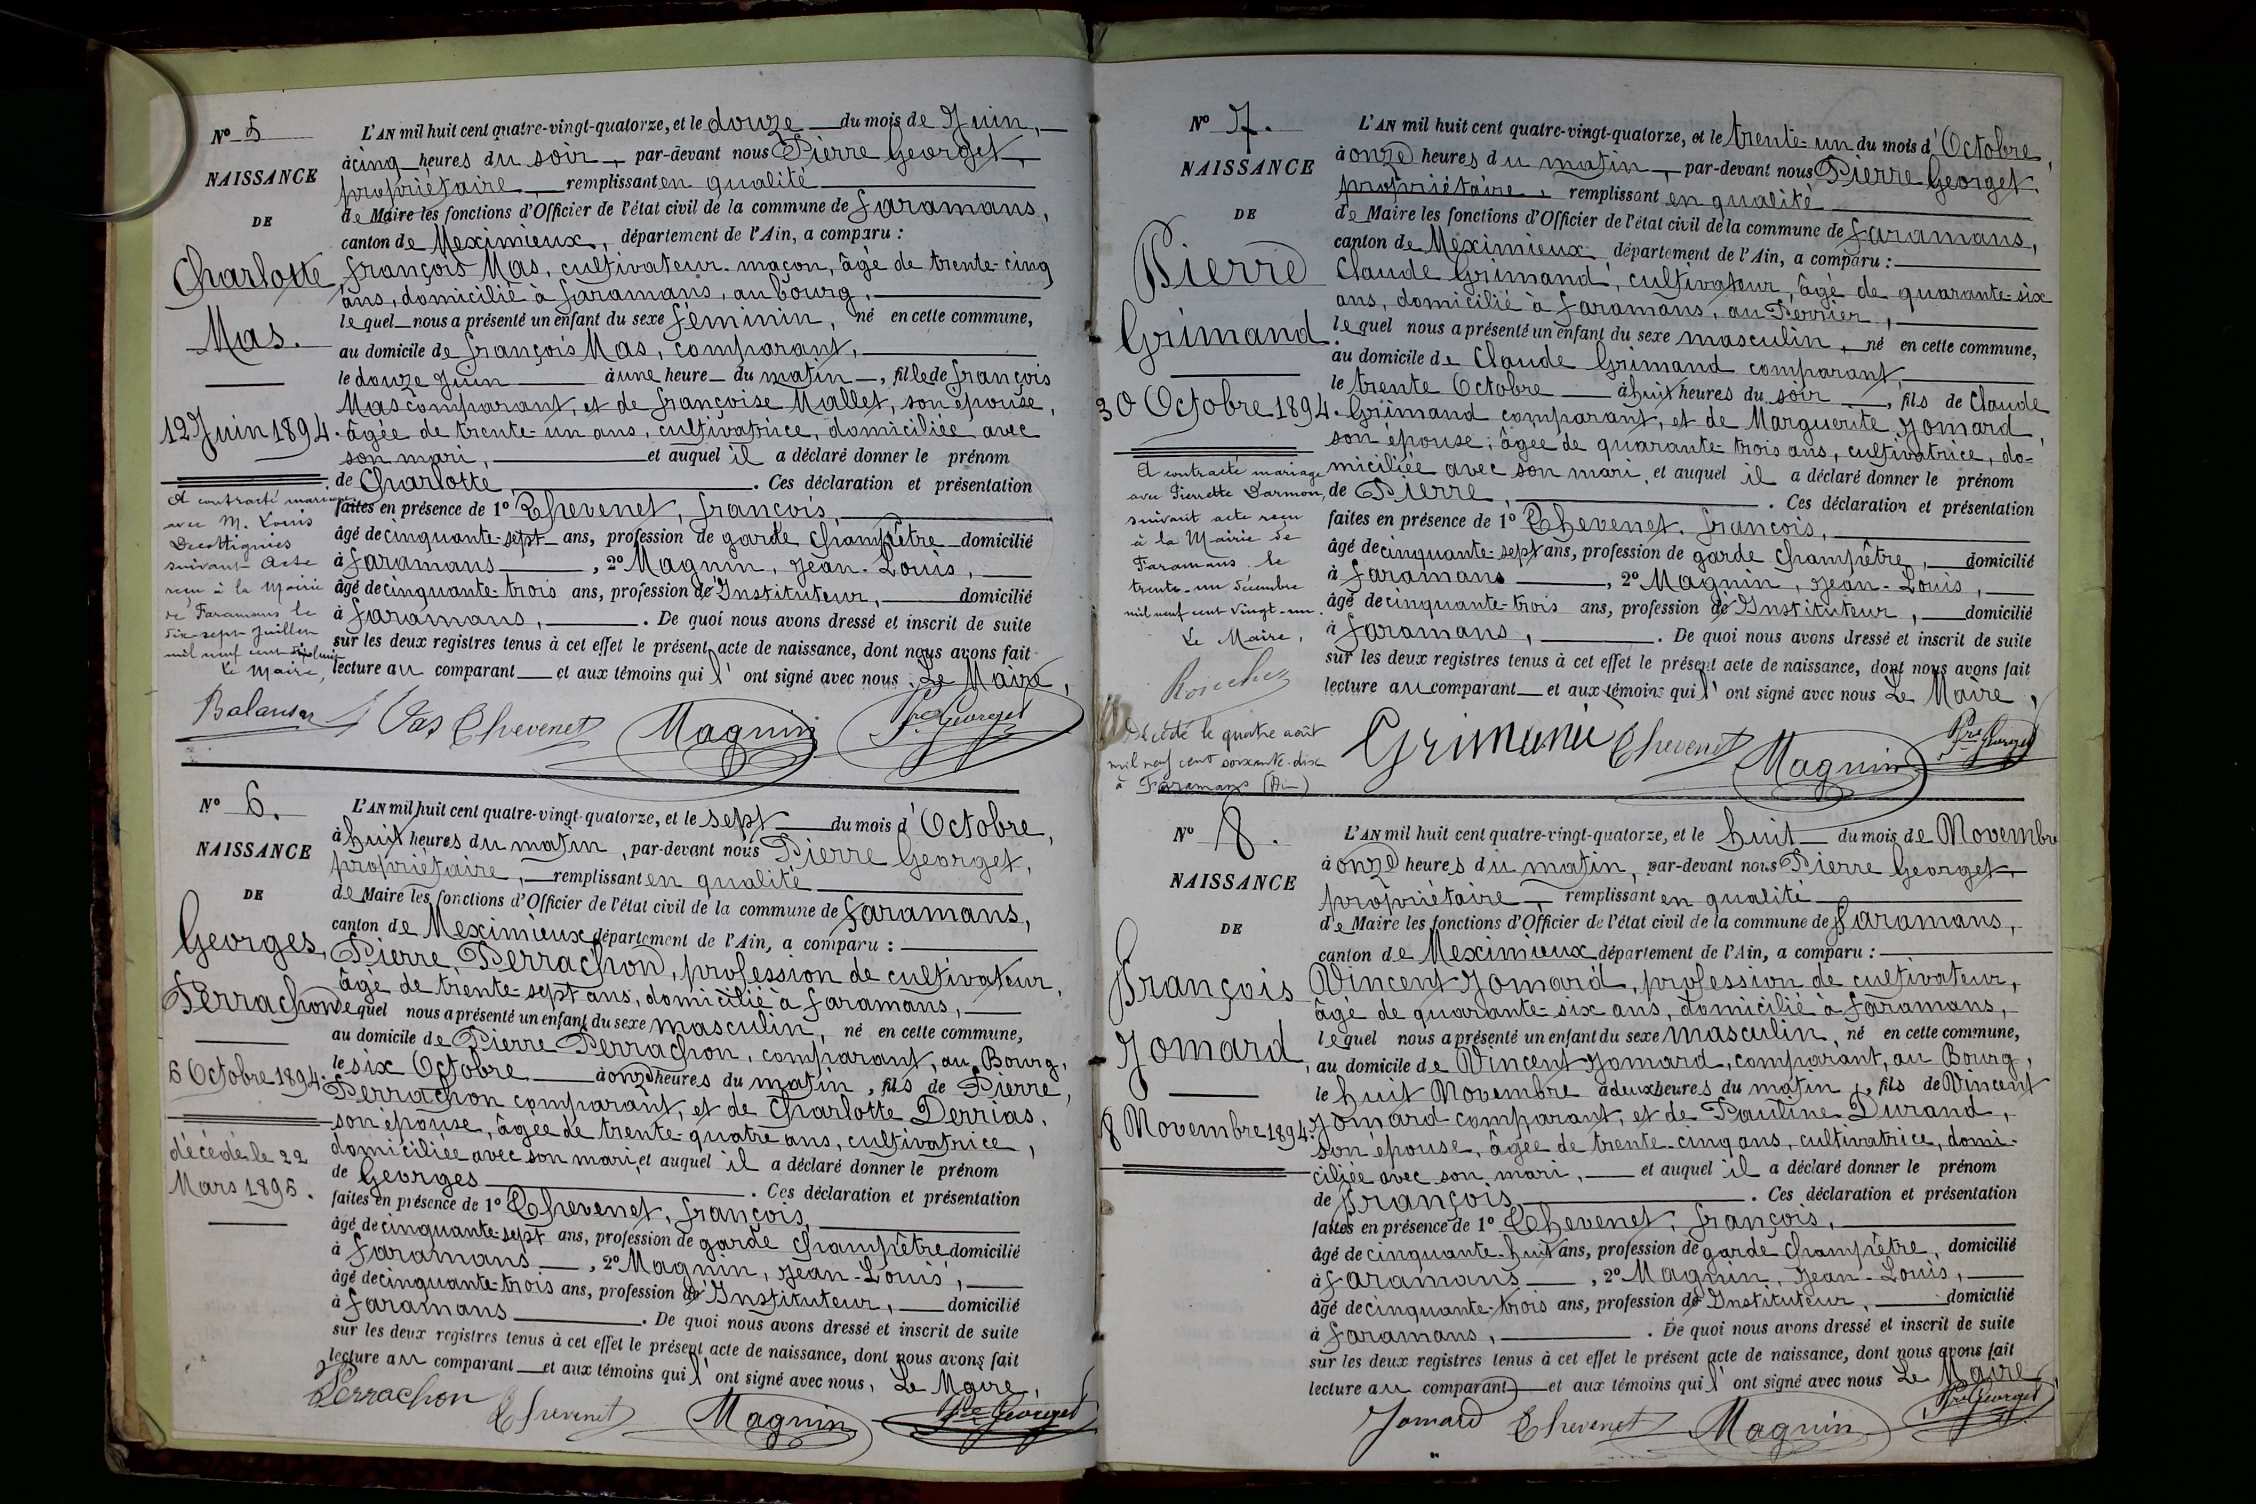 N° 5
NAISSANCE
DE
Charlotte
Mas.
12 Juin 1894.
A contracté mariage
avec M. Louis
Decottignies
suivant acte
reçu à la Mairie
de Faramans le
dix-sept Juillet
mil neuf cent
Le Maire,
L'AN mil huit cent quatre-vingt-quatorze, et le douze du mois de Juin,
à cinq heures du soir, par-devant nous Pierre Georget,
propriétaire, remplissant en qualité
de Maire les fonctions d'Officier de l'état civil de la commune de Faramans,
canton de Meximieux, département de l'Ain, a comparu :
François Mas, cultivateur-maçon, âgé de trente-cinq
ans, domicilié à Faramans, au bourg,
lequel nous a présenté un enfant du sexe féminin, né en cette commune,
au domicile de François Mas, comparant,
le douze Juin à une heure du matin, fille de François
Mas comparant, et de Françoise Mallet, son épouse,
âgée de trente-un ans, cultivatrice, domiciliée avec
son mari, et auquel il a déclaré donner le prénom
de Charlotte. Ces déclaration et présentation
faites en présence de 1° Thevenet, François,
âgé de cinquante-sept ans, profession de garde champêtre domicilié
à Faramans, 2° Magnin, Jean-Louis,
âgé de cinquante-trois ans, profession d'Instituteur, domicilié
à Faramans, . De quoi nous avons dressé et inscrit de suite
sur les deux registres tenus à cet effet le présent acte de naissance, dont nous avons fait
lecture au comparant et aux témoins qui l'ont signé avec nous. Le Maire,
Mas Thevenet Magnin Pre Georget
N° 6.
NAISSANCE
DE
Georges,
Perrachon
6 Octobre 1894.
décédé le 22
Mars 1895.
L'AN mil huit cent quatre-vingt-quatorze, et le sept du mois d'Octobre,
à huit heures du matin, par-devant nous Pierre Georget,
propriétaire, remplissant en qualité
de Maire les fonctions d'Officier de l'état civil de la commune de Faramans,
canton de Meximieux département de l'Ain, a comparu :
Pierre, Perrachon, profession de cultivateur,
âgé de trente-sept ans, domicilié à Faramans,
lequel nous a présenté un enfant du sexe masculin, né en cette commune,
au domicile de Pierre Perrachon, comparant, au Bourg,
le six Octobre à onze heures du matin, fils de Pierre,
Perrachon comparant, et de Charlotte Derrias,
son épouse, âgée de trente-quatre ans, cultivatrice,
domiciliée avec son mari, et auquel il a déclaré donner le prénom
de Georges. Ces déclaration et présentation
faites en présence de 1° Thevenet, François,
âgé de cinquante-sept ans, profession de garde champêtre domicilié
à Faramans, 2° Magnin, Jean-Louis,
âgé de cinquante-trois ans, profession d'Instituteur, domicilié
à Faramans. De quoi nous avons dressé et inscrit de suite
sur les deux registres tenus à cet effet le présent acte de naissance, dont nous avons fait
lecture au comparant et aux témoins qui l'ont signé avec nous, Le Maire,
Perrachon Thevenet Magnin Pre Georget
N° 7.
NAISSANCE
DE
Pierre
Grimand.
30 Octobre 1894.
A contracté mariage
avec Pierrette Darmon,
suivant acte reçu
à la Mairie de
Faramans le
trente-un décembre
mil neuf cent vingt-un.
Le Maire,
Décédé le quatre août
mil neuf cent soixante-dix
à Faramans (Ain)
L'AN mil huit cent quatre-vingt-quatorze, et le trente-un du mois d'Octobre,
à onze heures du matin, par-devant nous Pierre Georget,
propriétaire, remplissant en qualité
de Maire les fonctions d'Officier de l'état civil de la commune de Faramans,
canton de Meximieux département de l'Ain, a comparu :
Claude Grimand, cultivateur, âgé de quarante-six
ans, domicilié à Faramans, au Perrier,
lequel nous a présenté un enfant du sexe masculin, né en cette commune,
au domicile de Claude Grimand comparant,
le trente Octobre à huit heures du soir, fils de Claude
Grimand comparant, et de Marguerite Jomard,
son épouse, âgée de quarante-trois ans, cultivatrice, do-
miciliée avec son mari, et auquel il a déclaré donner le prénom
de Pierre, . Ces déclaration et présentation
faites en présence de 1° Thevenet, François,
âgé de cinquante-sept ans, profession de garde champêtre, domicilié
à Faramans, 2° Magnin, Jean-Louis,
âgé de cinquante-trois ans, profession d'Instituteur, domicilié
à Faramans, . De quoi nous avons dressé et inscrit de suite
sur les deux registres tenus à cet effet le présent acte de naissance, dont nous avons fait
lecture au comparant et aux témoins qui l'ont signé avec nous Le Maire,
Thevenet Magnin Pre Georget
N° 8.
NAISSANCE
DE
François
Jomard,
8 Novembre 1894.
L'AN mil huit cent quatre-vingt-quatorze, et le huit du mois de Novembre
à onze heures du matin, par-devant nous Pierre Georget,
propriétaire, remplissant en qualité
de Maire les fonctions d'Officier de l'état civil de la commune de Faramans,
canton de Meximieux département de l'Ain, a comparu :
Vincent Jomard, profession de cultivateur,
âgé de quarante-six ans, domicilié à Faramans,
lequel nous a présenté un enfant du sexe masculin, né en cette commune,
au domicile de Vincent Jomard, comparant, au Bourg,
le huit Novembre à deux heures du matin, fils de Vincent
Jomard comparant, et de Pauline Durand,
son épouse, âgée de trente-cinq ans, cultivatrice, domi-
ciliée avec son mari, et auquel il a déclaré donner le prénom
de François. Ces déclaration et présentation
faites en présence de 1° Thevenet, François,
âgé de cinquante-huit ans, profession de garde champêtre, domicilié
à Faramans, 2° Magnin, Jean-Louis,
âgé de cinquante-trois ans, profession d'Instituteur, domicilié
à Faramans, . De quoi nous avons dressé et inscrit de suite
sur les deux registres tenus à cet effet le présent acte de naissance, dont nous avons fait
lecture au comparant et aux témoins qui l'ont signé avec nous Le Maire
Jomard Thevenet Magnin Pre Georget